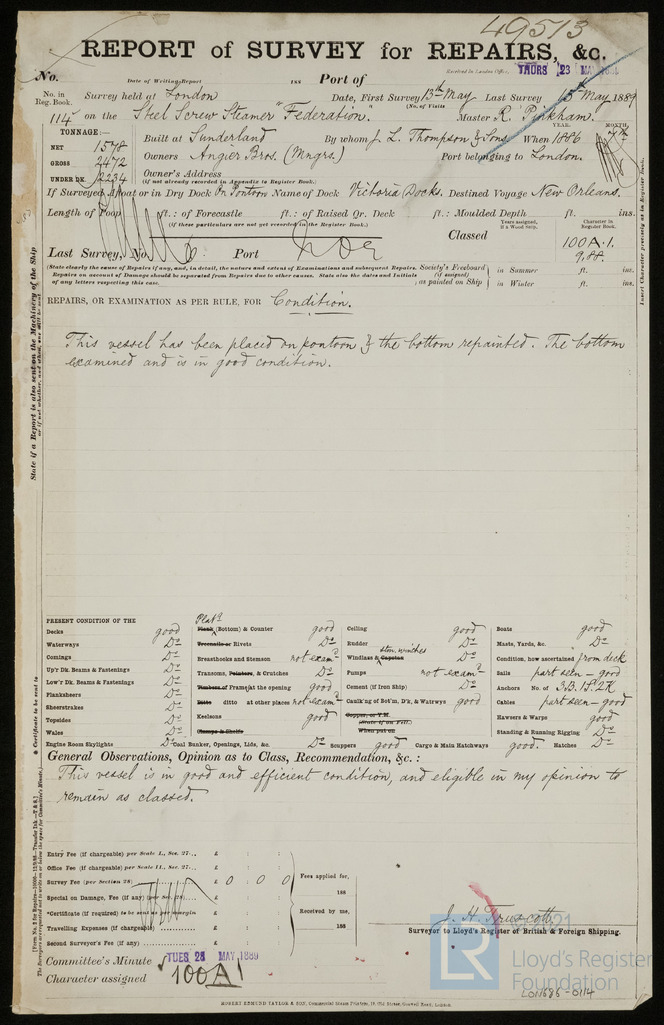 49513
REPORT of SURVEY for REPAIRS, &c.
No. Date of Writing Report 188 Port of Received in London Office, THURS 23 MAY 1889
No. in Reg. Book. Survey held at London Date, First Survey 13th May Last Survey 15th May 1889
(No. of Visits )
114 on the Steel Screw Steamer "Federation." Master R. Pinkham.
TONNAGE:— YEAR. MONTH.
NET 1578 Built at Sunderland By whom J. L. Thompson & Sons When 1886 7th
GROSS 2472 Owners Angier Bros. (Mngrs.) Port belonging to London.
UNDER DK. 2234 Owner's Address
(if not already recorded in Appendix to Register Book.)
If Surveyed Afloat or in Dry Dock On Pontoon Name of Dock Victoria Docks. Destined Voyage New Orleans.
Length of Poop ft.: of Forecastle ft.: of Raised Qr. Deck ft.: Moulded Depth ft. ins.
(if these particulars are not yet recorded in the Register Book.) Years assigned, if a Wood Ship. Character in Register Book.
Classed 100A.1.
9,88.
Last Survey, No. Port
(State clearly the cause of Repairs if any, and, in detail, the nature and extent of Examinations and subsequent Repairs. Society's Freeboard in Summer ft. ins.
Repairs on account of Damage should be separated from Repairs due to other causes. State also the dates and Initials (if assigned)
of any letters respecting this case. as painted on Ship in Winter ft. ins.
REPAIRS, OR EXAMINATION AS PER RULE, FOR Condition.
This vessel has been placed on pontoon & the bottom repainted. The bottom
examined and is in good condition.
State if a Report is also sent on the Machinery of the Ship
Insert Character precisely as in Register Book.
PRESENT CONDITION OF THE
Decks good
Waterways Do
Comings Do
Up'r Dk. Beams & Fastenings Do
Low'r Dk. Beams & Fastenings Do
Planksheers Do
Sheerstrakes Do
Topsides Do
Wales Do
Engine Room Skylights Do
Platg
Plank (Bottom) & Counter good
Treenails or Rivets Do
Breasthooks and Stemson not examd
Transoms, Pointers, & Crutches Do
Timbers of Frame at the opening good
Ditto ditto at other places not examd
Keelsons good
Clamps & Shelfs
Coal Bunker, Openings, Lids, &c. Do
Ceiling good
Rudder Do
stm. winches
Windlass & Capstan Do
Pumps not examd
Cement (if Iron Ship) Do
Caulk'ng of Bot'm, D'k, & Waterwys good
Copper, or Y.M.
(State if on Felt)
When put on
Scuppers good Cargo & Main Hatchways good.
Boats good
Masts, Yards, &c. Do
Condition, how ascertained from deck
Sails part seen - good
Anchors No. of 3B. 1S. 2K
Cables part seen - good
Hawsers & Warps good
Standing & Running Rigging Do
Hatches Do
General Observations, Opinion as to Class, Recommendation, &c. :
This vessel is in good and efficient condition, and eligible in my opinion to
remain as classed.
Entry Fee (if chargeable) per Scale I., Sec. 27... £ : :
Office Fee (if chargeable) per Scale II., Sec. 27... £ : :
Survey Fee (per Section 28) £ 0 : 0 : 0
Special on Damage, Fee (if any) (per Sec. 28) £ : :
*Certificate (if required) to be sent as per margin £ : :
Travelling Expenses (if chargeable) £ : :
Second Surveyor's Fee (if any) £ : :
Fees applied for,
188
Received by me,
188
J. H. Truscott
Surveyor to Lloyd's Register of British & Foreign Shipping.
Committee's Minute TUES 28 MAY 1889
Character assigned 100A1
ROBERT EDMUND TAYLOR & SON, Commercial Steam Printers, 19, Old Street, Goswell Road, London
LR
2021
Lloyd's Register
Foundation
LON686-0114